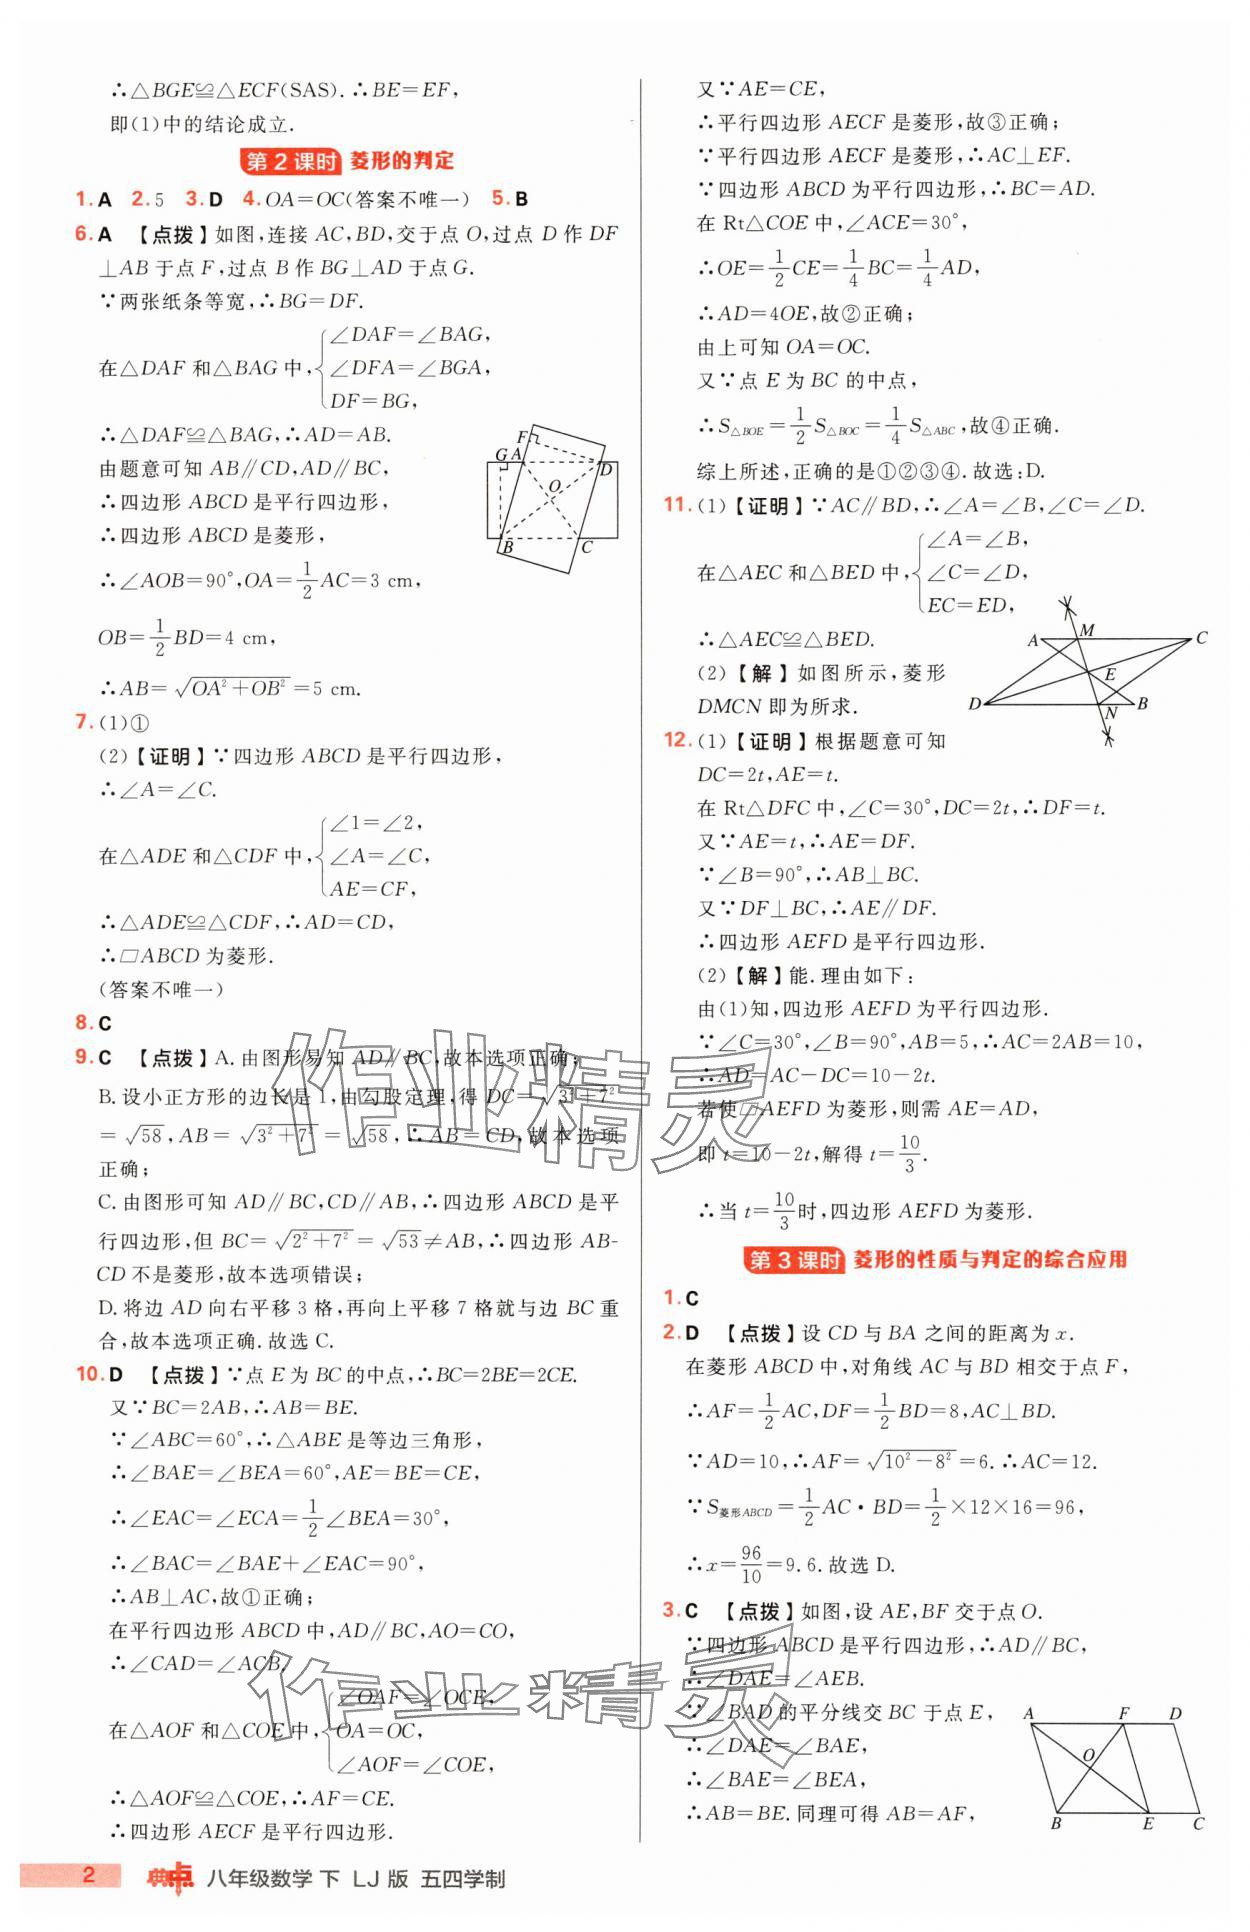 ∴△BGE≌△ECF(SAS).∴BE=EF,
即(1)中的结论成立.
第2课时 菱形的判定
1.A 2.5 3.D 4.OA=OC(答案不唯一) 5.B
6.A 【点拨】如图,连接 AC,BD,交于点 O,过点 D 作 DF
⊥AB 于点 F,过点 B 作 BG⊥AD 于点 G.
∵两张纸条等宽,∴BG=DF.
在△DAF 和△BAG 中,{∠DAF=∠BAG,
∠DFA=∠BGA,
DF=BG,
∴△DAF≌△BAG,∴AD=AB.
由题意可知 AB∥CD,AD∥BC,
∴四边形 ABCD 是平行四边形,
∴四边形 ABCD 是菱形,
∴∠AOB=90°,OA=1/2AC=3 cm,
OB=1/2BD=4 cm,
∴AB=√(OA²+OB²)=5 cm.
F
G A
D
O
B
C
7.(1)①
(2)【证明】∵四边形 ABCD 是平行四边形,
∴∠A=∠C.
在△ADE 和△CDF 中,{∠1=∠2,
∠A=∠C,
AE=CF,
∴△ADE≌△CDF,∴AD=CD,
∴▱ABCD 为菱形.
(答案不唯一)
8.C
9.C 【点拨】A.由图形易知 AD∥BC,故本选项正确;
B.设小正方形的边长是 1,由勾股定理,得 DC=√(3²+7²)
=√58,AB=√(3²+7²)=√58,∴AB=CD,故本选项
正确;
C.由图形可知 AD∥BC,CD∥AB,∴四边形 ABCD 是平
行四边形,但 BC=√(2²+7²)=√53≠AB,∴四边形 AB-
CD 不是菱形,故本选项错误;
D.将边 AD 向右平移 3 格,再向上平移 7 格就与边 BC 重
合,故本选项正确.故选 C.
10.D 【点拨】∵点 E 为 BC 的中点,∴BC=2BE=2CE.
又∵BC=2AB,∴AB=BE.
∵∠ABC=60°,∴△ABE 是等边三角形,
∴∠BAE=∠BEA=60°,AE=BE=CE,
∴∠EAC=∠ECA=1/2∠BEA=30°,
∴∠BAC=∠BAE+∠EAC=90°,
∴AB⊥AC,故①正确;
在平行四边形 ABCD 中,AD∥BC,AO=CO,
∴∠CAD=∠ACB,
在△AOF 和△COE 中,{∠OAF=∠OCE,
OA=OC,
∠AOF=∠COE,
∴△AOF≌△COE,∴AF=CE.
∴四边形 AECF 是平行四边形.
又∵AE=CE,
∴平行四边形 AECF 是菱形,故③正确;
∵平行四边形 AECF 是菱形,∴AC⊥EF.
∵四边形 ABCD 为平行四边形,∴BC=AD.
在 Rt△COE 中,∠ACE=30°,
∴OE=1/2CE=1/4BC=1/4AD,
∴AD=4OE,故②正确;
由上可知 OA=OC.
又∵点 E 为 BC 的中点,
∴S△BOE=1/2S△BOC=1/4S△ABC,故④正确.
综上所述,正确的是①②③④.故选:D.
11.(1)【证明】∵AC∥BD,∴∠A=∠B,∠C=∠D.
在△AEC 和△BED 中,{∠A=∠B,
∠C=∠D,
EC=ED,
∴△AEC≌△BED.
(2)【解】如图所示,菱形
DMCN 即为所求.
A M C
E
D N B
12.(1)【证明】根据题意可知
DC=2t,AE=t.
在 Rt△DFC 中,∠C=30°,DC=2t,∴DF=t.
又∵AE=t,∴AE=DF.
∵∠B=90°,∴AB⊥BC.
又∵DF⊥BC,∴AE∥DF.
∴四边形 AEFD 是平行四边形.
(2)【解】能.理由如下:
由(1)知,四边形 AEFD 为平行四边形.
∵∠C=30°,∠B=90°,AB=5,∴AC=2AB=10,
∴AD=AC-DC=10-2t.
若使▱AEFD 为菱形,则需 AE=AD,
即 t=10-2t,解得 t=10/3.
∴当 t=10/3时,四边形 AEFD 为菱形.
第3课时 菱形的性质与判定的综合应用
1.C
2.D 【点拨】设 CD 与 BA 之间的距离为 x.
在菱形 ABCD 中,对角线 AC 与 BD 相交于点 F,
∴AF=1/2AC,DF=1/2BD=8,AC⊥BD.
∵AD=10,∴AF=√(10²-8²)=6.∴AC=12.
∵S菱形ABCD=1/2AC·BD=1/2×12×16=96,
∴x=96/10=9.6.故选 D.
3.C 【点拨】如图,设 AE,BF 交于点 O.
∵四边形 ABCD 是平行四边形,∴AD∥BC,
∴∠DAE=∠AEB.
∵∠BAD 的平分线交 BC 于点 E,
∴∠DAE=∠BAE,
∴∠BAE=∠BEA,
∴AB=BE.同理可得 AB=AF,
A F D
O
B E C
作业精灵
作业精灵
2 典中点 八年级数学 下 LJ 版 五四学制